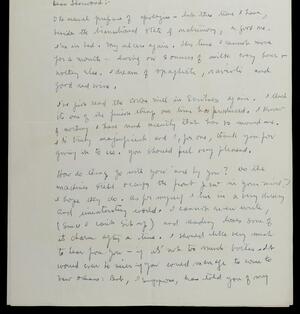 Dear Sherwood:
The usual preface of apologies - but this time I have,
beside the transitional state of matrimony, a good one.
I'm in bed. My ulcers again. This time I cannot move
for a month - living on 3 ounces of milk every hour -
nothing else. I dream of spaghetti, ravioli and
good red wine.
I've just read the in Scribners again. I think
it's one of the finest things our time has produced. I
of nothing I have read recently that has so moved me.
It's truly magnificent and I, for one, thank you for
giving it to us. You should feel very pleased.
How do things go with you and by you? Do the
machines still occupy the front seat in your mind?
I hope they do. As for myself I live in a very dreary
and uninteresting world. I cannot even write,
(since I can't sit up) and reading loses some of
its charm after a time. I should like very much
to hear from you - if it's not too much bother. It
would ever so nice if you could manage to come to
New Orleans. Bob, I suppose, has told you of my